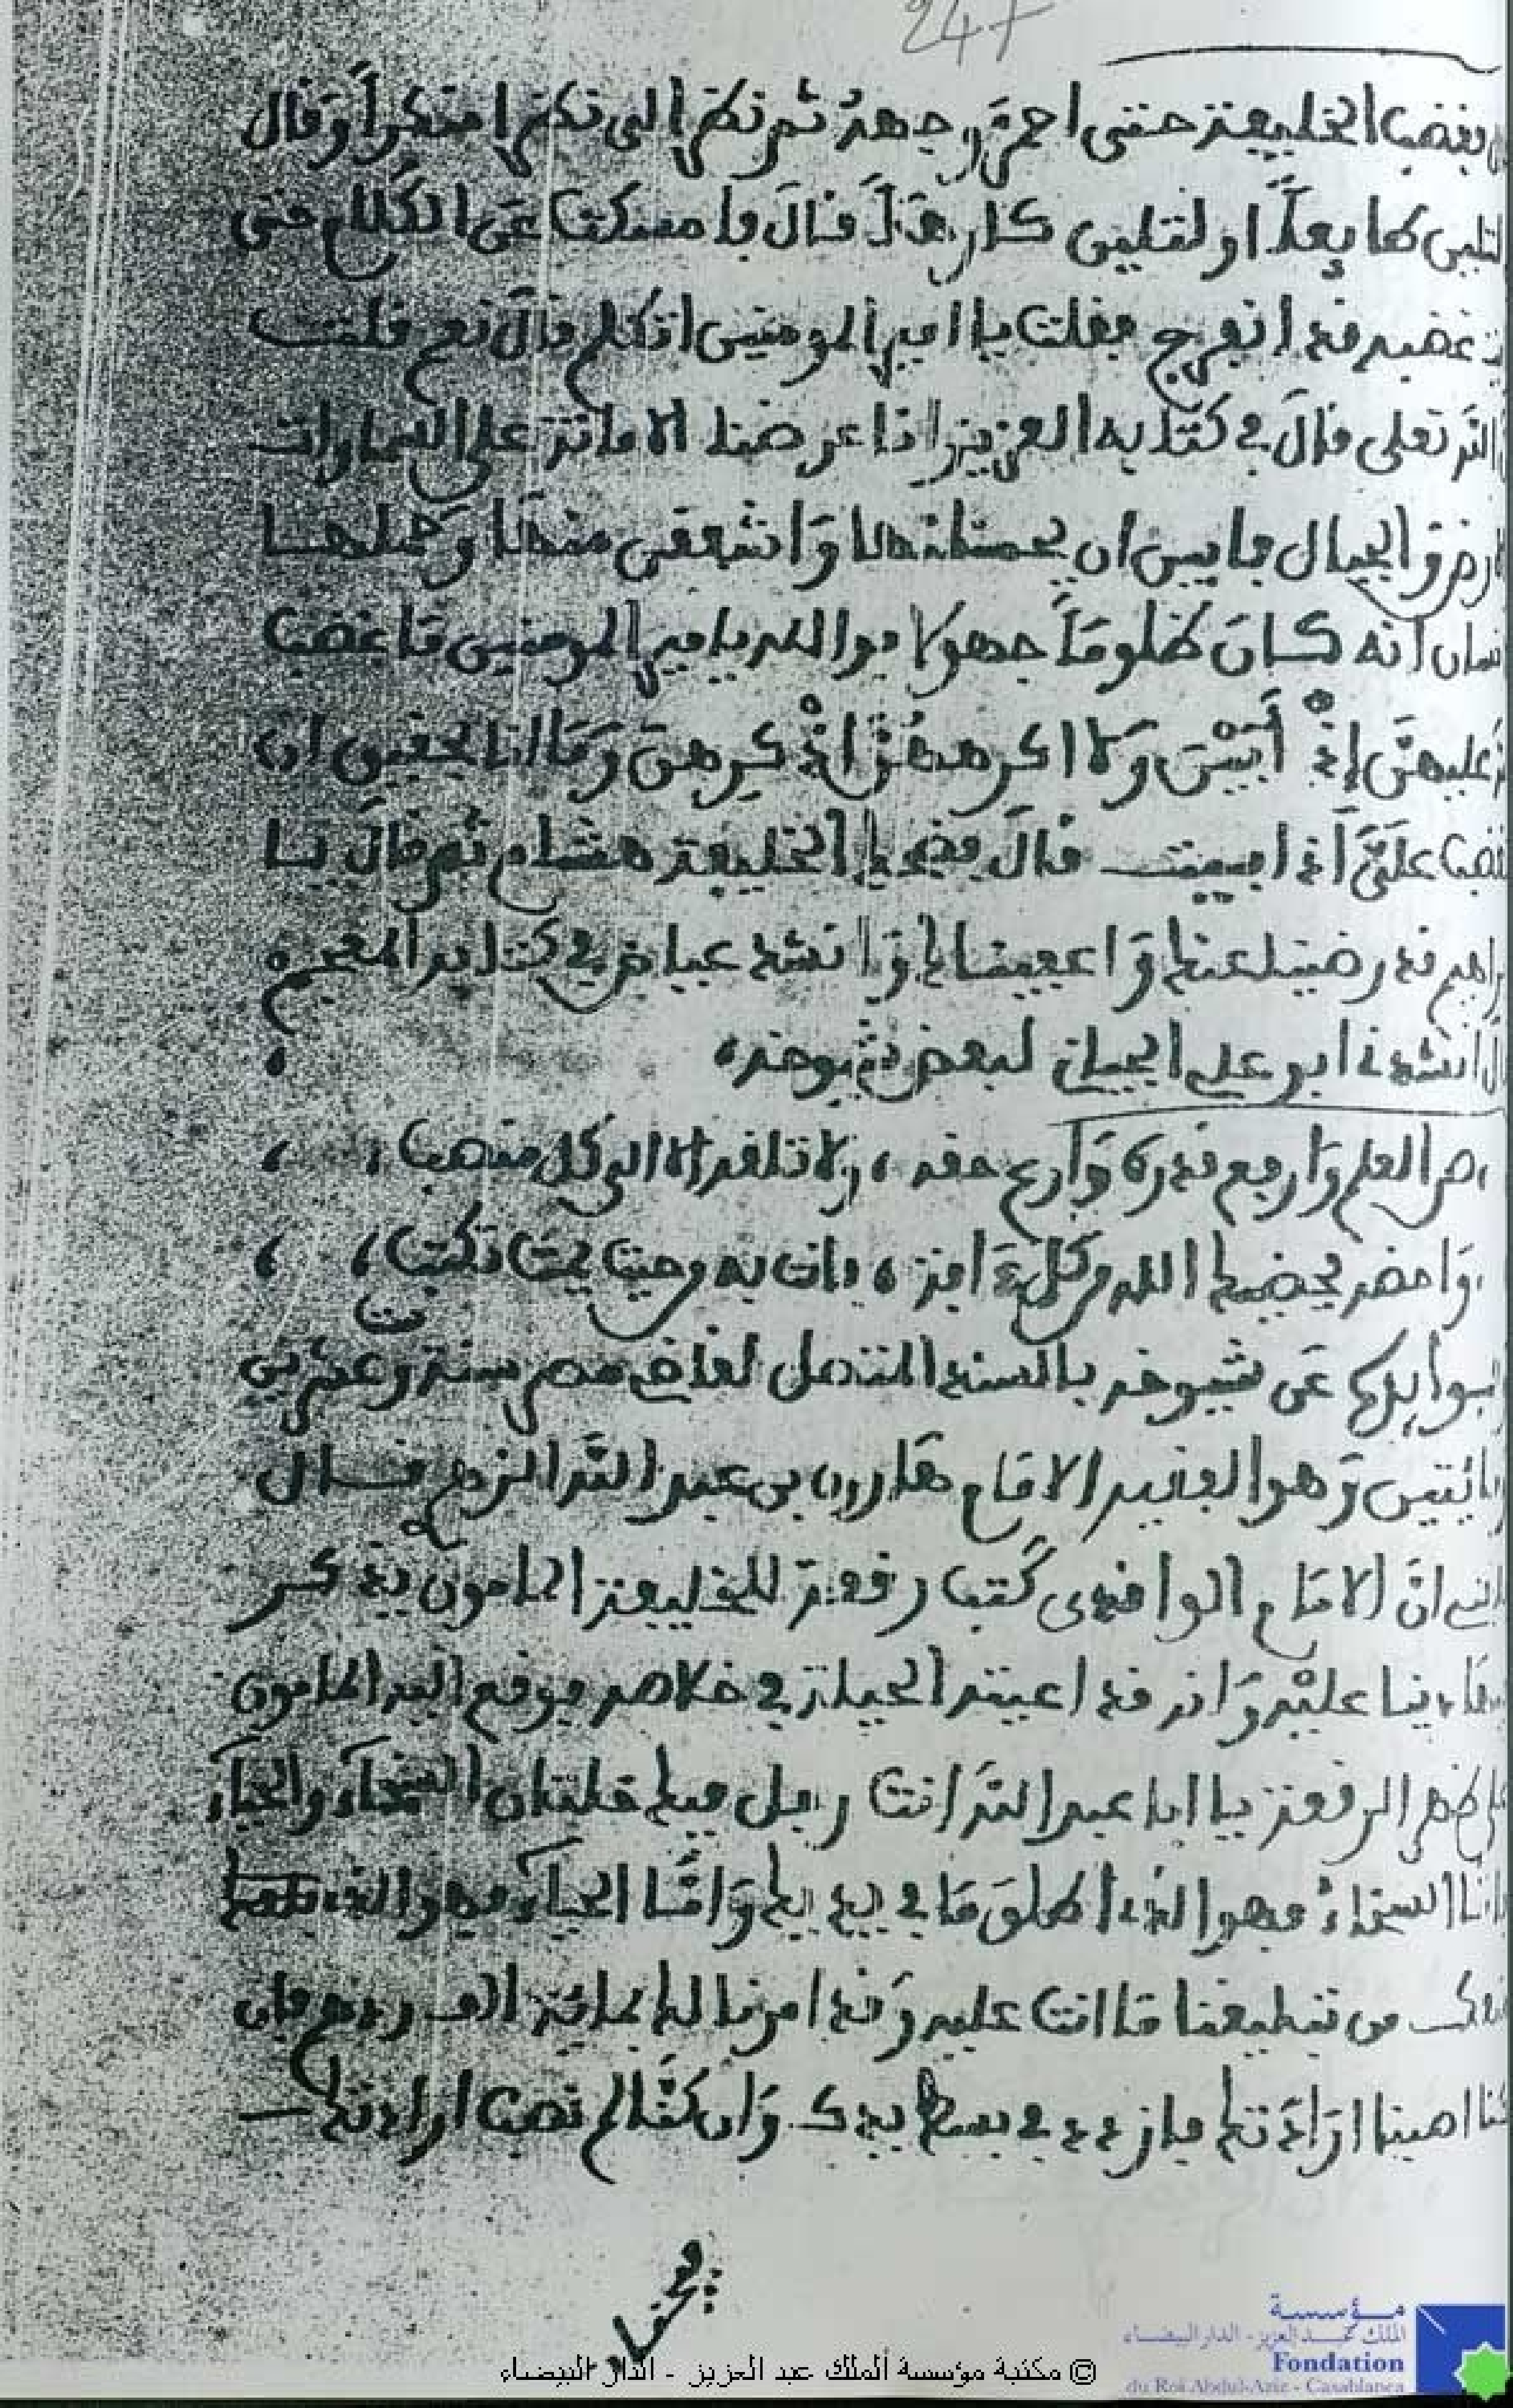 247
فغضب الخليفة حتى احمر وجهه ثم نظر الي نظرا منكرا وقال
لتلين طايعا او لتلين كارها قال فامسكت عن الكلام حتى
غضبه قد انفرج فقلت يا امير المومنين اتكلم قال نعم قلت
الله تعلى قال في كتابه العزيز انا عرضنا الامانة على السماوات
والجبال فابين ان يحملنها واشفقن منها وحملها
انه كان ظلوما جهولا فوالله يامير المومنين ما غضب
عليهن إذ أبين ولا اكرههن إذ كرهن وما انا بحقيق ان
علي اذ ابيت قال فضحك الخليفة هشام ثم قال يا
قد رضينا عنك واعفيناك وانشد عياض في كتابه المعجم
انشدنا ابو علي الجياني لبعض شيوخه
العلم وارفع قدره وارع حقه ، ولا تلقه الا الى كل منصب ،
واحضر الله ، فان به حيت تكتب ،
عن شيوخه بالسند المتصل لقاضي مصر ستة وعشرين
ومائتين وهو الفقيه الامام هارون بن عبد الله الزهري قال
ان الامام الواقدي كتب رقعة للخليفة المامون يذكر
عليه وانه قد اعيته الحيلة في خلاصه فوقع اليه المامون
على ظهر الرقعة يا ابا عبد الله انت رجل فيك خلتان السخاء والحياء
السخاء فهو الذي اطلق ما في يديك واما الحياء فهو الذي
من تبليغنا ما انت عليه وقد امرنا لك بمائة الف درهم فان
كنا اصبنا ارادتك فازدد في بسط يدك وان كنا لم نصب ارادتك
© مكتبة مؤسسة الملك عبد العزيز - الدار البيضاء
مؤسسة
الملك عبد العزيز - الدار البيضاء
Fondation
du Roi Abdul-Aziz - Casablanca